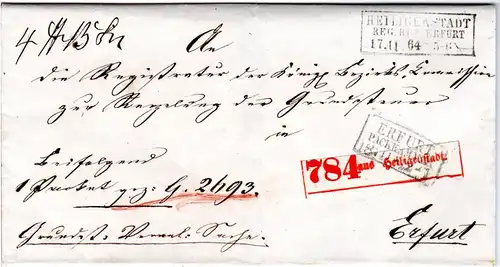 HEILIGENSTADT
REG. BEZ. ERFURT
17.11 64 5-6
An
die Registratur der Königl Bezirks-Commission
zur Regelung der Grundsteuer
in
Beifolgend
1 Packet gez: G. 2693.
Grundst: Veranl: Sache.
ERFURT
784 aus Heiligenstadt.
Erfurt